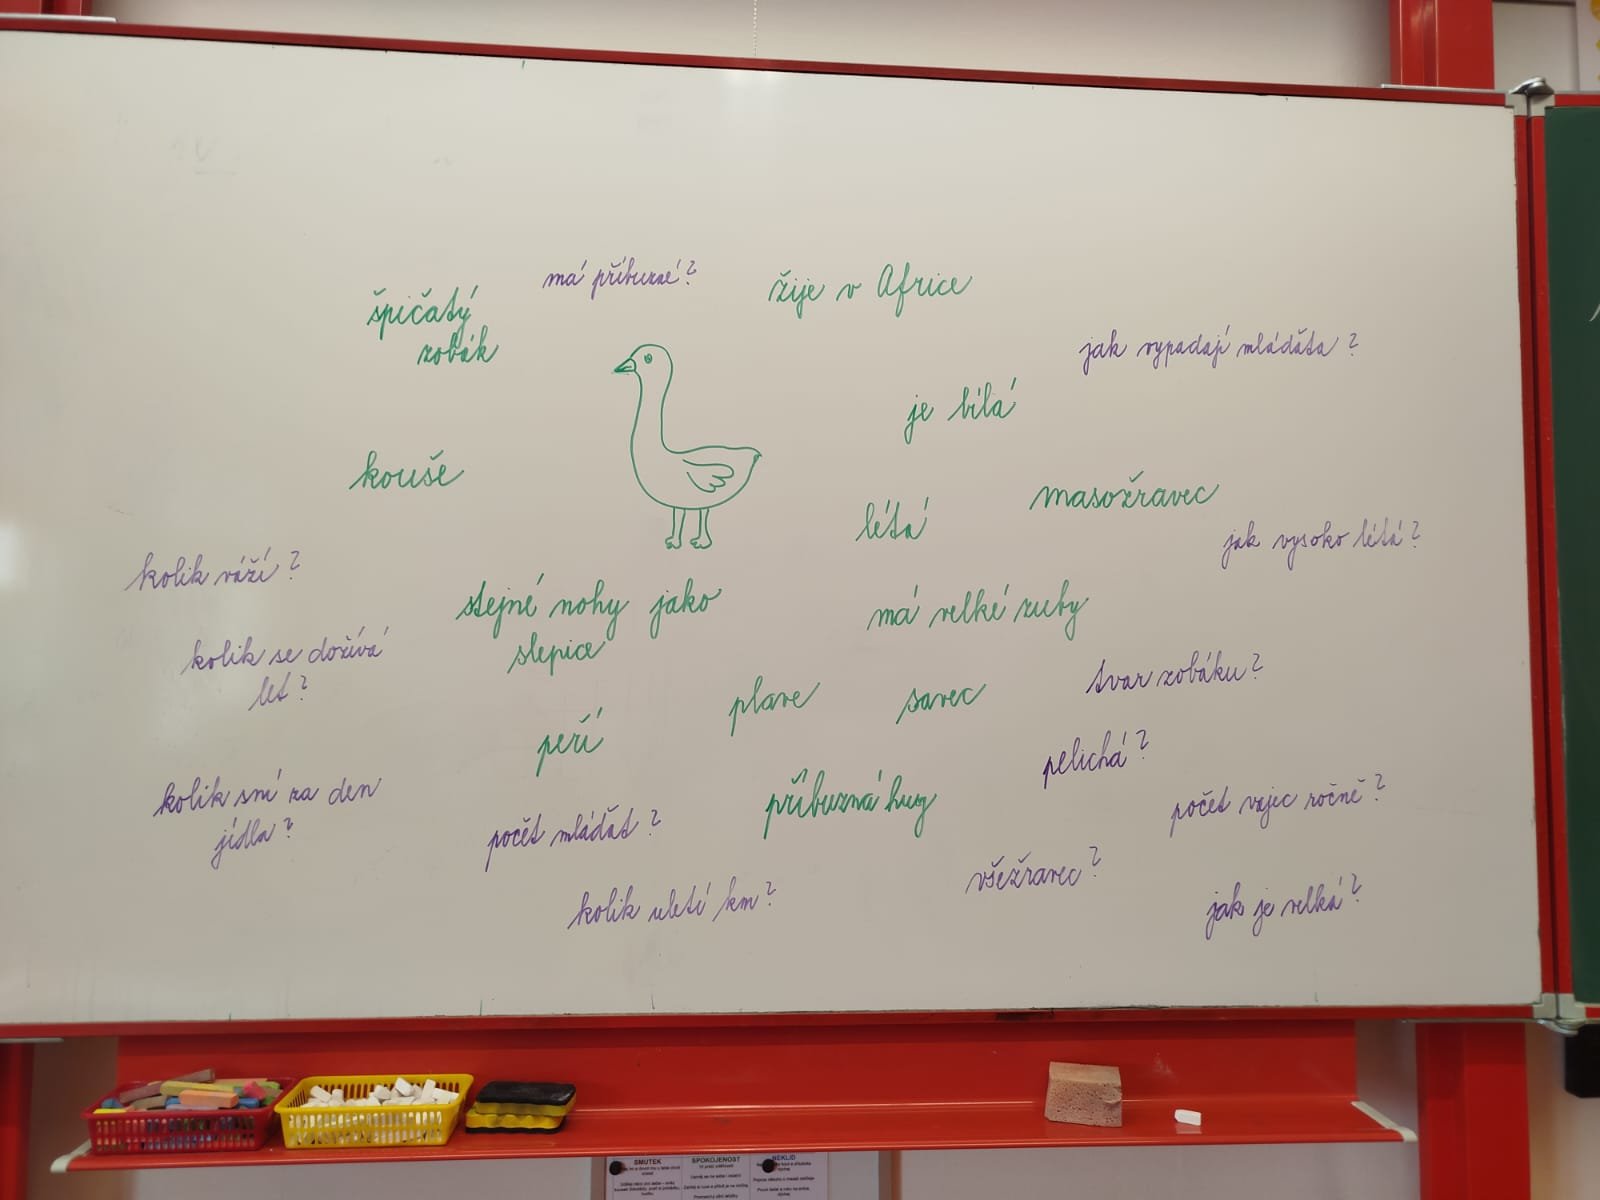 má příbuzné?
žije v Africe
špičatý
zobák
jak vypadají mláďáta?
je bílá
kouše
masožravec
létá
jak vysoko létá?
kolik váží?
stejné nohy jako
slepice
má velké zuby
kolik se dožívá
let?
tvar zobáku?
plave
savec
peří
pelichá?
kolik sní za den
jídla?
příbuzná husy
počet vajec ročně?
počet mláďat?
všežravec?
kolik uletí km?
jak je velká?
SMUTEK
SPOKOJENOST
NEKLID